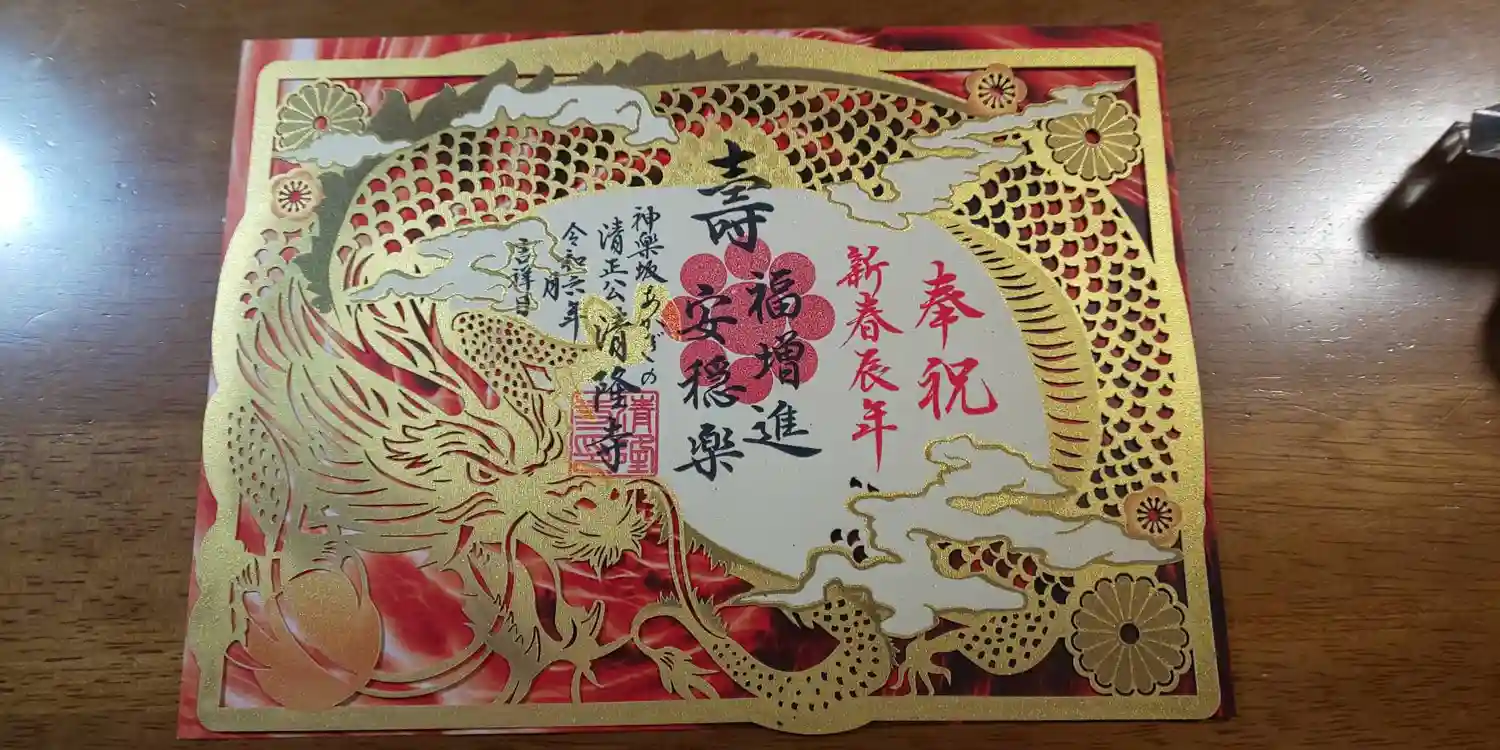 奉祝
新春辰年
壽
福増進
安穏楽
神楽坂あかぎの
清正公清隆寺
令和六年
月
吉祥日